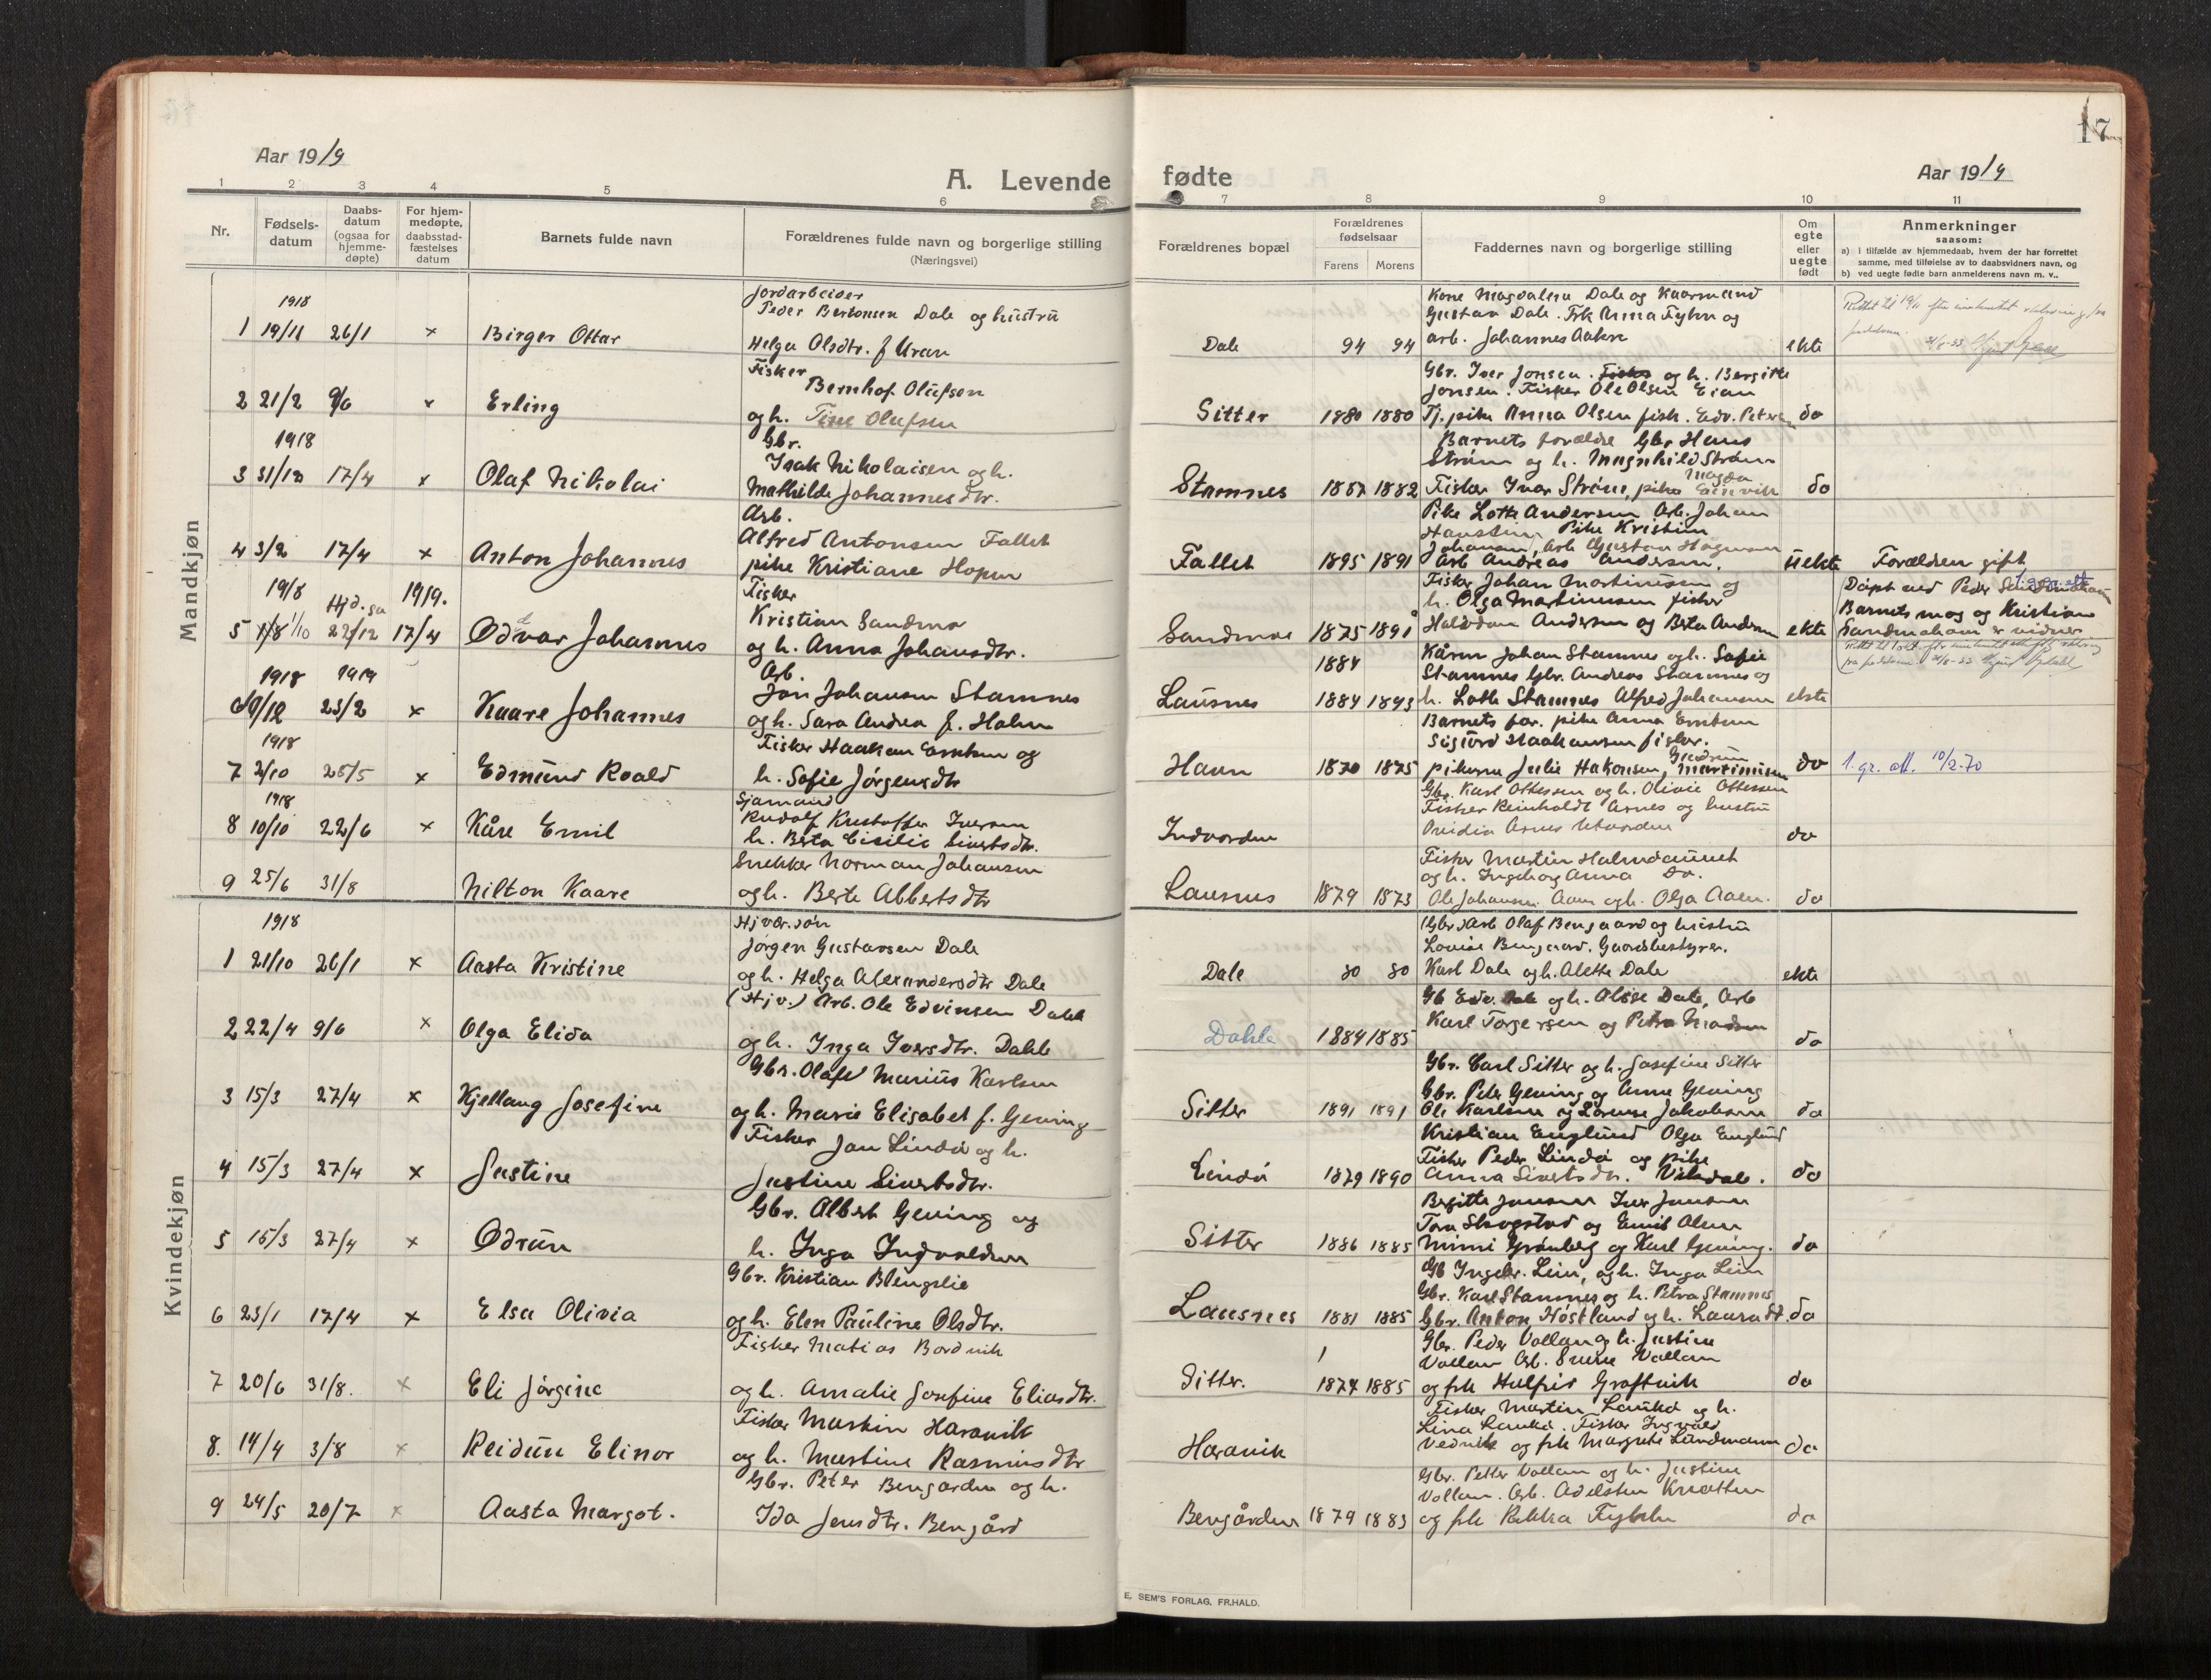 Aar 1919
A. Levende
1 2 3 4 5 6
Nr.
Fødsels-
datum
Daabs-
datum
(ogsaa for
hjemme-
døpte)
For hjem-
medøpte,
daabsstad-
fæstelses
datum
Barnets fulde navn
Forældrenes fulde navn og borgerlige stilling
(Næringsvei)
Mandkjøn
1918
Jordarbeider
Peder Bertonsen Dale og hustru
1 19/11 26/1 × Birger Ottar
Helga Olsdtr. f Uran
Fisker
Bernhof Olufson
2 21/2 9/6 × Erling
og h. Tine Olufsen
1918
Gbr.
Isak Nikolaisen og h.
3 31/12 17/4 × Olaf Nikolai
Mathilde Johannesdtr.
Arb.
Alfred Antonsen Fallet
4 3/2 17/4 × Anton Johannes
pike Kristiane Hopen
1918 1919.
Fisker
Kristian Sandmo
5 1/10 22/12 17/4 Odvar Johannes
og h. Anna Johansdtr.
1918 1919
Arb.
Jon Johansen Stamnes
6 9/12 23/2 × Kaare Johannes
og h. Sara Andrea f. Holm
1918
Fisker Haakon Emtsen og
7 2/10 25/5 × Edmund Roald
h. Sofie Jörgensdtr
1918
Sjømand
Rudolf Kristoffer Iversen
8 10/10 22/6 × Kåre Emil
h. Berta Cicilie Sivertsdtr.
Snekker Norman Johansen
9 25/6 31/8 Nilton Kaare
og h. Berte Albertsdtr
Kvindekjøn
1918
Jørgen Gustavsen Dale
1 21/10 26/1 × Aasta Kristine
og h. Helga Alexandersdtr Dale
(Hjv.) Arb. Ole Edvinsen Dahle
2 22/4 9/6 × Olga Elida
og h. Inga Iversdtr. Dahle
Gbr. Olaf Marius Karlsen
3 15/3 27/4 × Kjellaug Josefine
og h. Marie Elisabet f. Gening
Fisker Jon Lindö og h.
4 15/3 27/4 × Justine
Justine Sivertsdtr.
Gbr. Albert Gening og
5 16/3 27/4 × Odrun
h. Inga Ingvaldsen
Gbr. Kristian Blengslie
6 23/1 17/4 × Elsa Olivia
og h. Elen Pauline Olsdtr.
Fisker Matias Bordvik
7 20/6 31/8. × Eli Jørgine
og h. Amalie Josefine Eliasdtr.
Fisker Martin Haranvik
8. 14/4 3/8 × Reidun Elinor
og h. Martine Rasmusdtr
Gbr. Peter Bengården og h.
9 24/5 20/7 × Aasta Margot.
Ida Jensdtr. Bengård
17
fødte
Aar 1919
7 8 9 10 11
Forældrenes bopæl
Forældrenes
fødselsaar
Farens Morens
Faddernes navn og borgerlige stilling
Om
egte
eller
uegte
født
Anmerkninger
saasom:
a) i tilfælde av hjemmedaab, hvem der har forrettet
samme, med tilføielse av to daabsvidners navn, og
b) ved uegte fødte barn anmelderens navn m. v..
Kone Magdalena Dale og Kaarmand
Gustav Dale. Frk Anna Fyhn og
Dale 94 94 arb. Johannes Aakre ekte
Gbr. Iver Jonsen og h. Bergitte
Jonsen. Fisker Ole Olsen Eian
Sitter 1880 1880 Tj. pike Anna Olsen fisk. Edv. Petersen do
Barnets forældre Gbr Hans
Strøm og h. Magnhild Strøm
Magda
Stamnes 1887 1882 Fisker Ivar Strøm, pike Einvik do
Pike Lotte Andersen Arb. Johan
Pike Kristine
Johansen, Arb Gustav Hagensen
Fallet 1895 1891 Arb Andreas Andersen. uekte Forældren gift
Fisker Johan Martinesen og
h. Olga Martinesen fisker
Døpt ved Peder
Barnets mog og Kristian
Sandmoe 1875 1891 Halvdan Andersen og Berta Andersen ekte Sandmoham er vidner
1884 Kårm Johan Stamnes og h. Sofie
Stamnes Gbr. Andreas Stamnes og
Lausnes 1884 1893 h. Lotte Stamnes Alfred Johansen ekte
Barnets for. pike Anna Emtsen
Sigurd Haakonsen fisker.
Gudrun
Havn 1870 1875 pikerne Julie Hakonsen, Martinusen do 1. gr. att. 10/2-70
Gbr. Karl Ottesen og h. Olivie Ottesen
Fisker Reinholdt Aines og hustru
Indvorden Ovidia Aines Utvorden do
Fisker Martin Holmdaunet
og h. Ingeborg Anna do.
Lausnes 1879 1873 Ole Johansen Aaen og h. Olga Aaen. do
Gbr. Arb Olaf Bengaard og hustru
Lovise Bengaard. Gaardsbestyrer.
Dale 80 80 Karl Dale og h. Alette Dale ekte
Gb Edv. Dale og h. Alise Dale, Arb
Dahle 1884 1885 Karl Torgersen og Petra Madsen do
Gbr. Carl Sitter og h. Josefine Sitter
Gbr. Peter Gening og Anne Gening
Sitter 1891 1891 Ole Karlsen og Lorense Jakobsen do
Kristian Englund Olga Englund
Fisker Peder Lindö og pike
Lindö 1879 1890 Anna Sivertsdtr. Vikdal. do
Bergitte Jonsen Iver Jonsen
Tora Skogstad og Emil Olsen
Sitter 1886 1885 Mimi Grønberg og Karl Gening. do
Gb Ingebr. Lein, og h. Inga Lein
Gbr. Karl Stamnes og h. Petra Stamnes
Lausnes 1881 1885 Gbr. Anton Höstland og h. Laura dt. do
Gbr. Peder Vollan og h. Justine
Vollan Arb. Sverre Vollan
Sitter. 1874 1885 og frk Halfrid Groftvik do
Fisker Martin Laukö og h.
Lina Laukö. Fisker Ingvald
Haranvik Vedvik og frk Margrete Lundmann do
Gbr. Petter Vollan og h. Justine
Vollan. Arb. Adelsten Knotten
Bengården 1879 1883 og frk Rebekka Fyhn do
E. SEM'S FORLAG, FR.HALD.